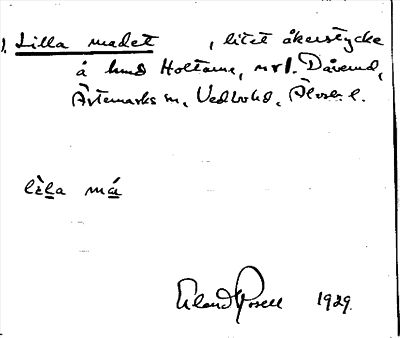 1. Lilla madet , litet åkerstycke
å hmd Holtane, nr 1. Dåverud,
Ärtemarks sn, Vedbohd, Älvsb. l.
lìla má
Erland Rosell 1929.